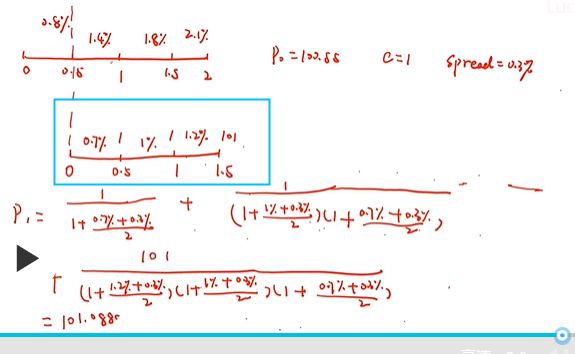 0.8% 1.4% 1.8% 2.1%
0 0.5 1 1.5 2
P₀=100.55 C=1 Spread=0.3%
0.7% 1% 1.2% 101
0 0.5 1 1.5
P₁= 1/(1+(0.7%+0.3%)/2) + 1/((1+(1%+0.3%)/2)(1+(0.7%+0.3%)/2))
+ 101/((1+(1.2%+0.3%)/2)(1+(1%+0.3%)/2)(1+(0.7%+0.3%)/2))
=101.088